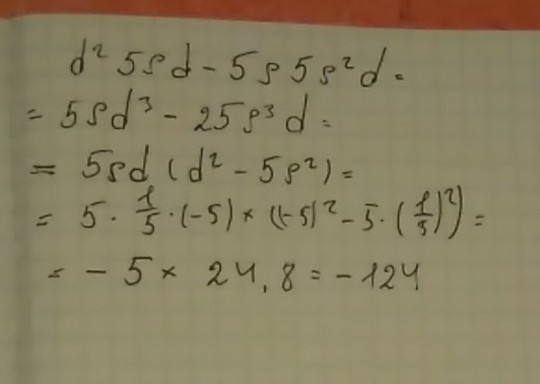 d² 5ρd - 5ρ 5ρ²d =
= 5ρd³ - 25ρ³d =
= 5ρd (d² - 5ρ²) =
= 5 · 1/5 · (-5) × ((-5)² - 5 · (1/5)²) =
= - 5 × 24,8 = -124